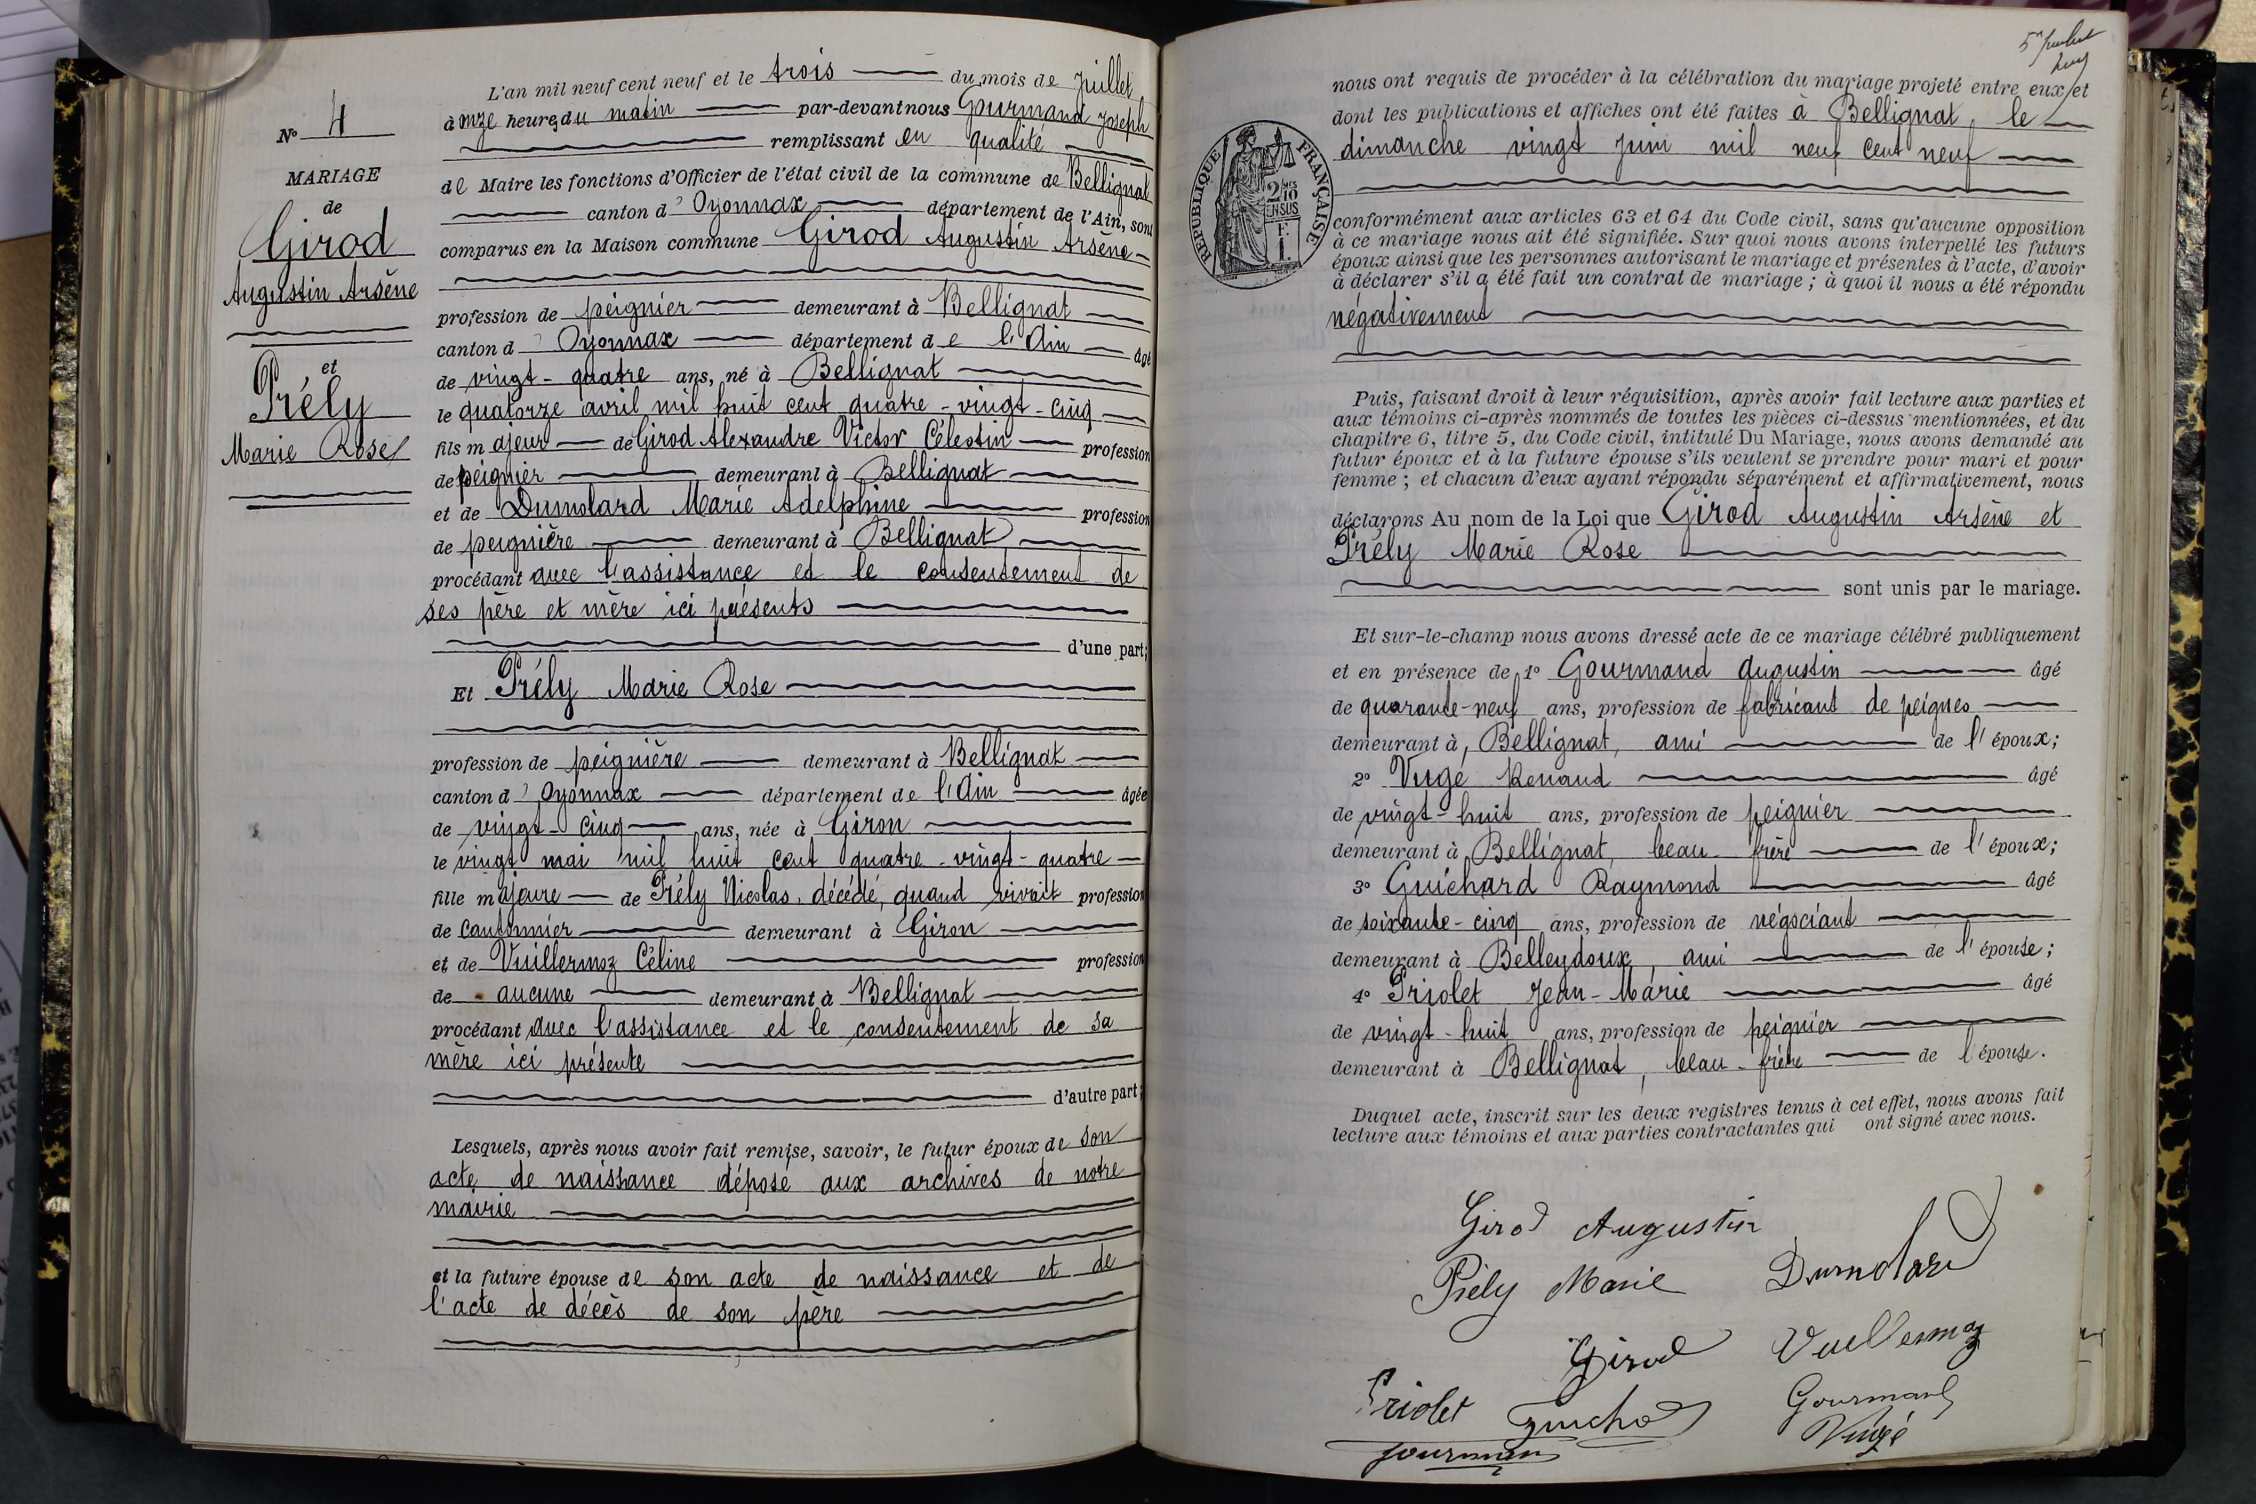 L'an mil neuf cent neuf et le trois du mois de Juillet
à onze heures du matin par-devant nous Gourmand Joseph
remplissant en qualité
de Maire les fonctions d'Officier de l'état civil de la commune de Bellignat
canton d'Oyonnax département de l'Ain, sont
comparus en la Maison commune Girod Augustin Arsène
profession de peignier demeurant à Bellignat
canton d'Oyonnax département de l'Ain âgé
de vingt-quatre ans, né à Bellignat
le quatorze avril mil huit cent quatre-vingt-cinq
fils majeur de Girod Alexandre Victor Célestin profession
de peignier demeurant à Bellignat
et de Dumolard Marie Adelphine profession
de peignière demeurant à Bellignat
procédant avec l'assistance et le consentement de
ses père et mère ici présents
d'une part;
Et Prély Marie Rose
profession de peignière demeurant à Bellignat
canton d'Oyonnax département de l'Ain âgée
de vingt-cinq ans, née à Giron
le vingt mai mil huit cent quatre-vingt-quatre
fille majeure de Prély Nicolas, décédé, quand vivait profession
de cantonnier demeurant à Giron
et de Vuillermoz Céline profession
de aucune demeurant à Bellignat
procédant avec l'assistance et le consentement de sa
mère ici présente
d'autre part;
Lesquels, après nous avoir fait remise, savoir, le futur époux de son
acte de naissance déposé aux archives de notre
mairie
et la future épouse de son acte de naissance et de
l'acte de décès de son père
No 4
MARIAGE
de
Girod
Augustin Arsène
et
Prély
Marie Rose
5 Juillet
nous ont requis de procéder à la célébration du mariage projeté entre eux et
dont les publications et affiches ont été faites à Bellignat, le
dimanche vingt juin mil neuf cent neuf
RÉPUBLIQUE FRANÇAISE
2 MES 10
EN SUS
F.
1.
conformément aux articles 63 et 64 du Code civil, sans qu'aucune opposition
à ce mariage nous ait été signifiée. Sur quoi nous avons interpellé les futurs
époux ainsi que les personnes autorisant le mariage et présentes à l'acte, d'avoir
à déclarer s'il a été fait un contrat de mariage ; à quoi il nous a été répondu
négativement
Puis, faisant droit à leur réquisition, après avoir fait lecture aux parties et
aux témoins ci-après nommés de toutes les pièces ci-dessus mentionnées, et du
chapitre 6, titre 5, du Code civil, intitulé Du Mariage, nous avons demandé au
futur époux et à la future épouse s'ils veulent se prendre pour mari et pour
femme ; et chacun d'eux ayant répondu séparément et affirmativement, nous
déclarons Au nom de la Loi que Girod Augustin Arsène et
Prély Marie Rose
sont unis par le mariage.
Et sur-le-champ nous avons dressé acte de ce mariage célébré publiquement
et en présence de 1o Gourmand Augustin âgé
de quarante-neuf ans, profession de fabricant de peignes
demeurant à Bellignat, ami de l'époux;
2o Vugé Renaud âgé
de vingt-huit ans, profession de peignier
demeurant à Bellignat, beau-frère de l'époux;
3o Guichard Raymond âgé
de soixante-cinq ans, profession de négociant
demeurant à Belleydoux, ami de l'épouse;
4o Priolet Jean-Marie âgé
de vingt-huit ans, profession de peignier
demeurant à Bellignat, beau-frère de l'épouse.
Duquel acte, inscrit sur les deux registres tenus à cet effet, nous avons fait
lecture aux témoins et aux parties contractantes qui ont signé avec nous.
Girod Augustin
Prély Marie Dumolard
Girod Vuellermoz
Priolet Guichard Gourmand
Gourmand Vugé